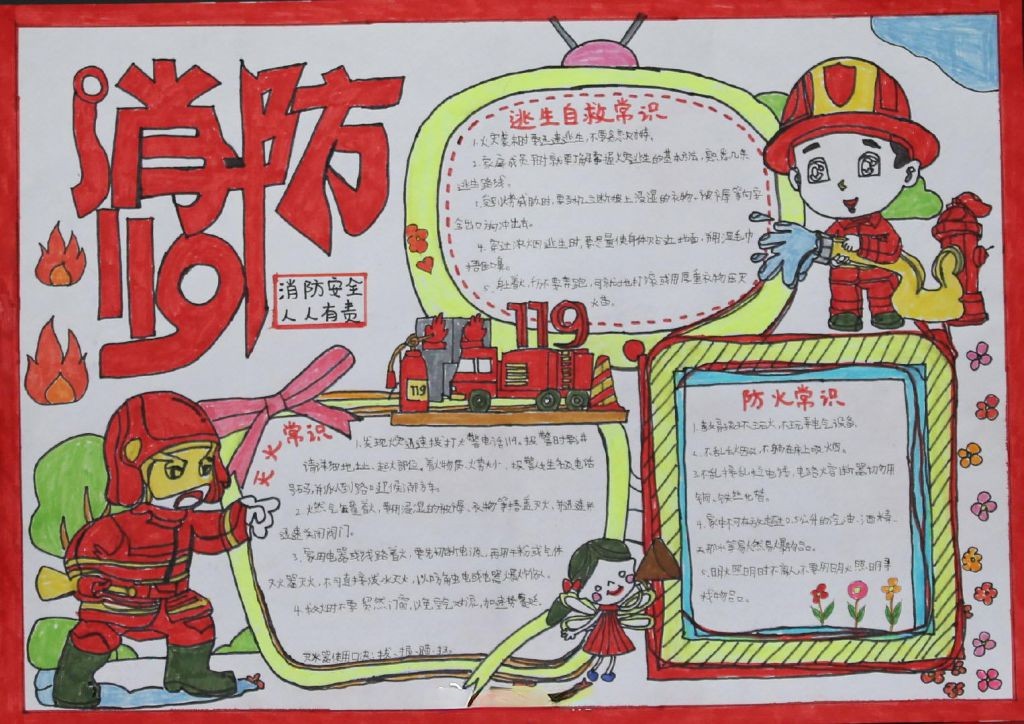 消防
119
消防安全
人人有责
逃生自救常识
1.火灾袭来时要迅速逃生,不要贪恋财物。
2.家庭成员平时就要了解掌握火灾逃生的基本方法,熟悉几条
逃生路线。
3.受到火势威胁时,要当机立断披上浸湿的衣物、被褥等向安
全出口方向冲出去。
4.穿过浓烟逃生时,要尽量使身体贴近地面,并用湿毛巾
捂住口鼻。
5.身上着火,千万不要奔跑,可就地打滚或用厚重衣物压灭
火苗。
119
119
灭火常识
1.发现火灾迅速拨打火警电话119。报警时
请详细地址、起火部位、着火物质、火势大小、报警人姓名及电话
号码,并派人到路口迎候消防车。
2.燃气罐着火,要用浸湿的被褥、衣物等捂盖灭火,并迅速
关闭阀门。
3.家用电器或线路着火,要先切断电源,再用干粉或气体
灭火器灭火,不可直接泼水灭火,以防触电或电器爆炸伤人。
4.救火时不要贸然开门窗,以免空气对流,加速火势蔓延。
灭火器使用口诀:拔、握、瞄、扫。
防火常识
1.教育孩子不玩火,不玩弄电气设备。
2.不乱扔烟头,不躺在床上吸烟。
3.不乱接乱拉电线,电路熔断器切勿用
铜、铁丝代替。
4.家中不可存放超过0.5公升的汽油、酒精、
天那水等易燃易爆物品。
5.明火照明时不离人,不要用明火照明寻
找物品。